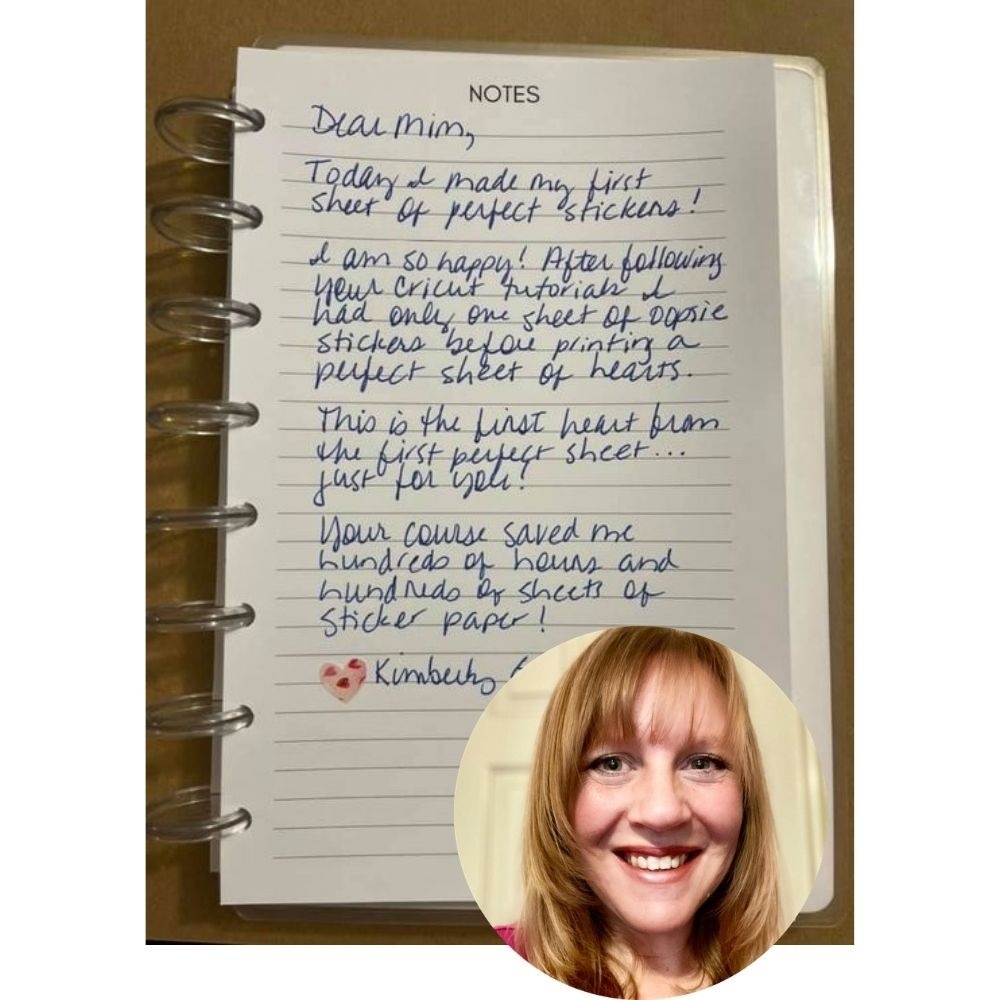 NOTES
Dear Mim,
Today I made my first
sheet of perfect stickers!
I am so happy! After following
your Cricut tutorials I
had only one sheet of oopsie
stickers before printing a
perfect sheet of hearts.
This is the first heart from
the first perfect sheet...
just for you!
Your course saved me
hundreds of hours and
hundreds of sheets of
sticker paper!
Kimberly